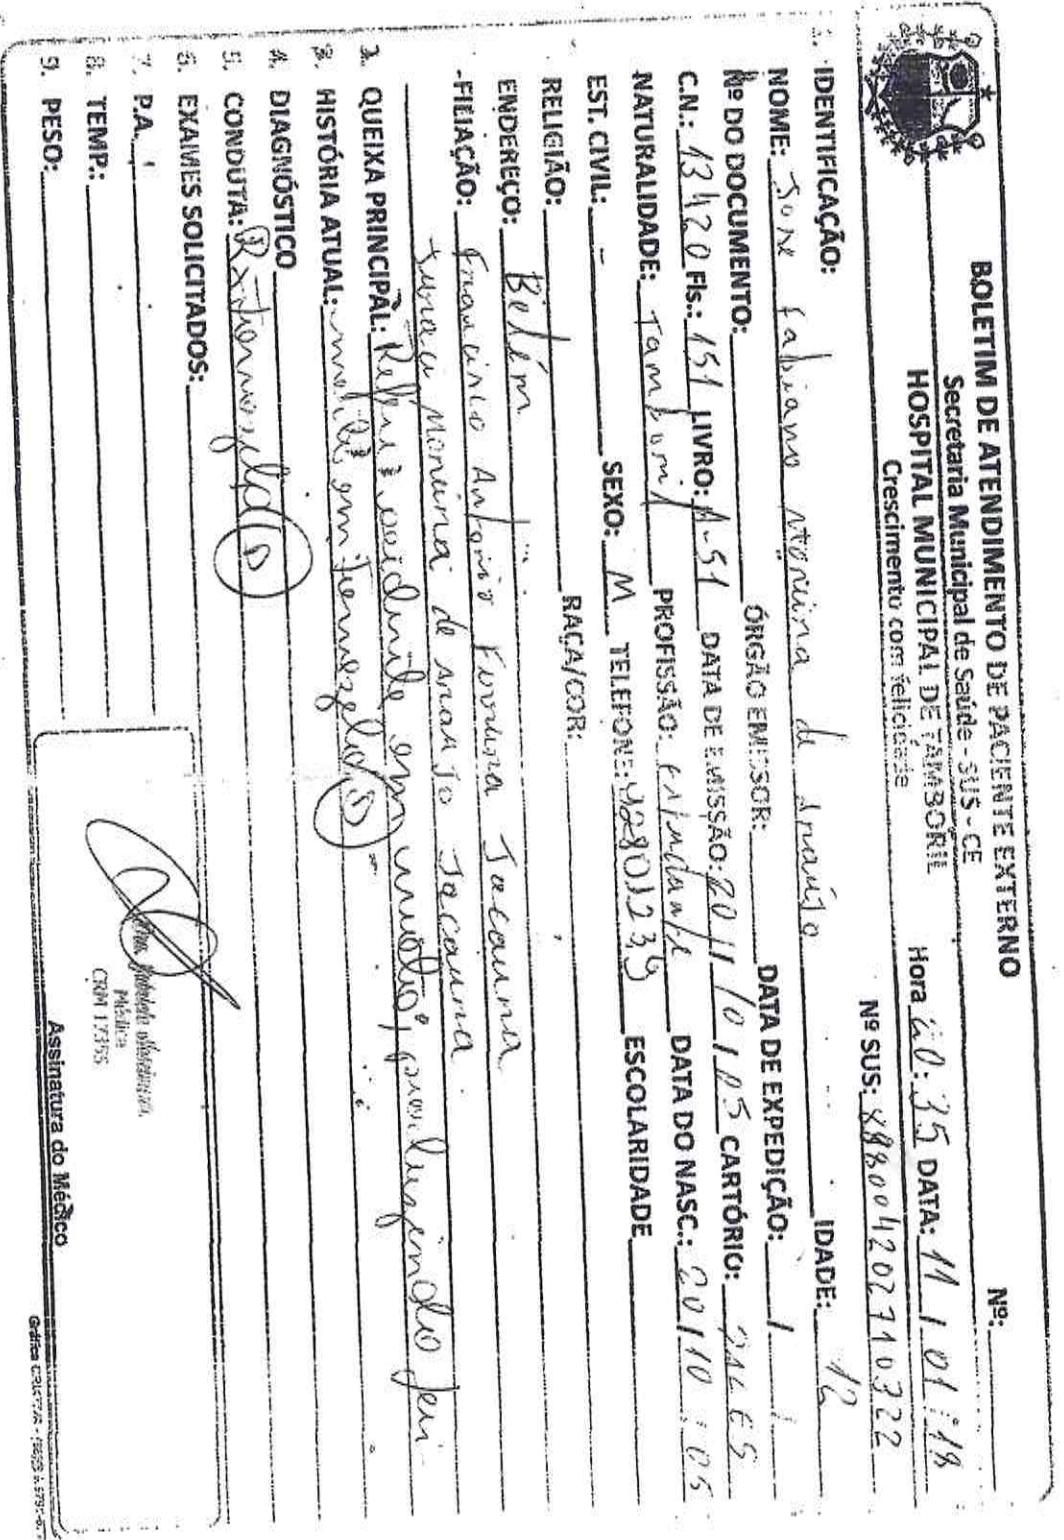 BOLETIM DE ATENDIMENTO DE PACIENTE EXTERNO Nº:
Secretaria Municipal de Saúde - SUS - CE
HOSPITAL MUNICIPAL DE TAMBORIL Hora 20:35 DATA: 11/01/18
Crescimento com felicidade Nº SUS: 898004202710322
1. IDENTIFICAÇÃO:
NOME: Jose Fabiano Moreira de Araujo IDADE: 12
Nº DO DOCUMENTO: ÓRGÃO EMISSOR: DATA DE EXPEDIÇÃO: / /
C.N.: 13420 Fls.: 151 LIVRO: A-51 DATA DE EMISSÃO: 20/10/05 CARTÓRIO:
NATURALIDADE: Tamboril PROFISSÃO: estudante DATA DO NASC.: 20/10/05
EST. CIVIL: - SEXO: M TELEFONE: ESCOLARIDADE
RELIGIÃO: RAÇA/COR:
ENDEREÇO: Belém
FILIAÇÃO: Francisco Antonio Ferreira Jacauna
Juraci Moreira de Araujo Jacauna
2. QUEIXA PRINCIPAL: Refere acidente em moto,
3. HISTÓRIA ATUAL: em tornozelo D
4. DIAGNÓSTICO
5. CONDUTA: Rx tornozelo D
6. EXAMES SOLICITADOS:
7. P.A.
8. TEMP.:
9. PESO:
Médica
CRM 17355
Assinatura do Médico